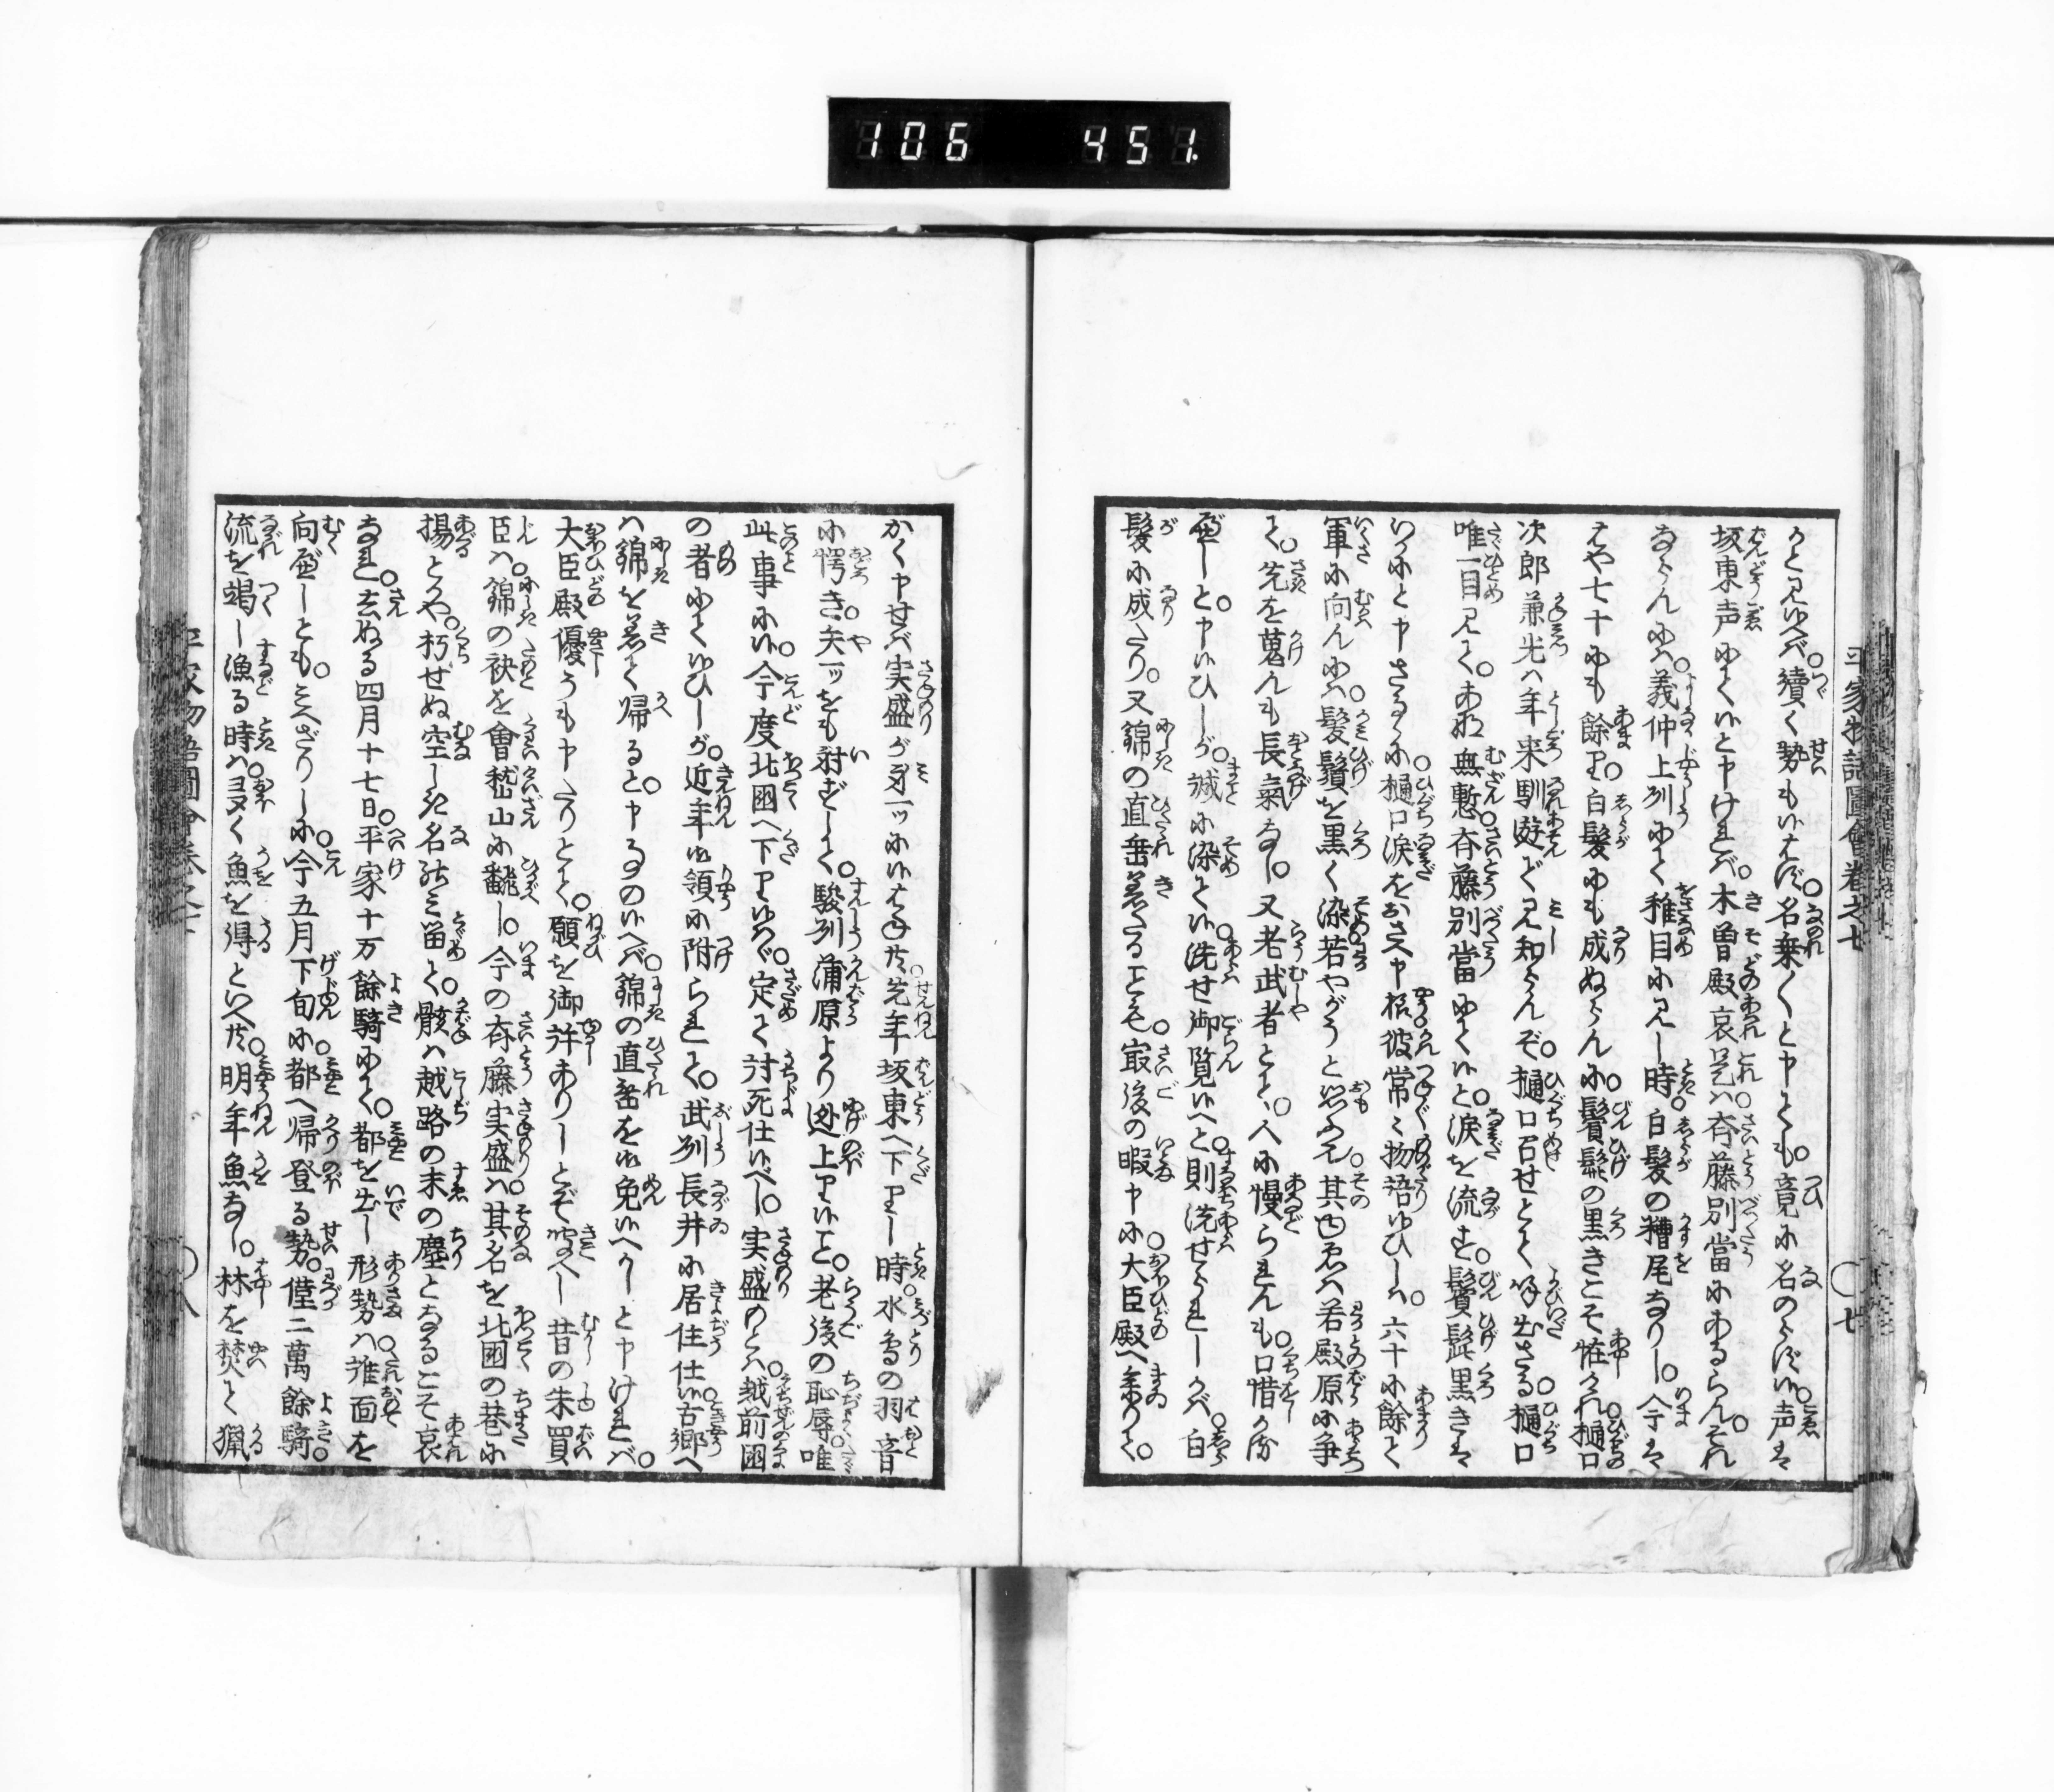 106 451.
平家物語圖會巻之七
〇七
かと見ゆへバ續く勢もいはず名乗〳〵と申とも竟に名のらずい声は
坂東声にていと申けれバ木曽殿哀是ハ斉藤別當にあるらんそれ
ならんにハ義仲上列にて稚目に見し時白髪の糟尾なりし今は
はや七十にも餘り白髪にも成ぬらんに鬢髭の黒きこそ怪けれ樋口
次郎兼光ハ年来馴遊で見知らんぞ樋口召せとて呼出さる樋口
唯一目見てあな無慙斉藤別當にていと涙を流す鬢髭黒きは
いかにとさるに樋口涙をおさへ申様彼常々物語ゆひしハ六十に餘て
軍に向んにハ髪鬚を黒く染若やがうと思ふ其ゆゑハ若殿原に争
て先を蒐んも長氣なし又老武者とて人に慢られんも口惜かる
べしと申いひしが誠に染てい洗せ御覧いへと則洗せられしかバ白
髪に成たり又錦の直垂着たる事も最後の暇申に大臣殿へ参りて
かく申せバ実盛が身一ツにいはね共先年坂東へ下りし時水鳥の羽音
に愕き矢一ツをも射ずして駿列蒲原より迯上りいと老後の恥辱唯
此事にい今度北國へ下りゆハヾ定て討死仕いべし実盛もとハ越前國
の者にてゆひしが近年御領に附られて武列長井に居住仕い古郷へ
ハ錦を着て帰ると申事のいへバ錦の直垂を御免いへかしと申けれバ
大臣殿優うも申たりとて願を御許ありしとぞ聞へし昔の朱買
臣ハ錦の袂を會嵆山に翻し今の斉藤実盛ハ其名を北國の巷に
揚とかや朽せぬ空しき名のミ留て骸ハ越路の末の塵となるこそ哀
なれ去ぬる四月十七日平家十万餘騎にて都を出し形勢ハ誰面を
向べしとも見へざりしに今五月下旬に都へ帰登る勢僅二萬餘騎
流を竭し漁る時ハ多く魚を得といへ共明年魚なし林を焚て猟
〇八